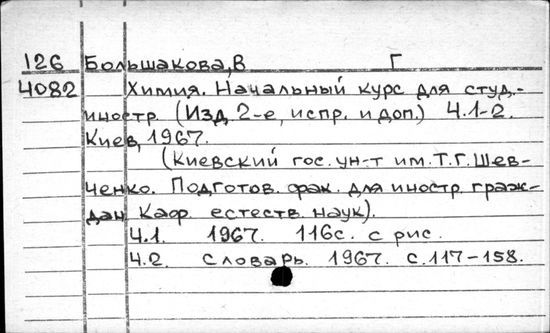 126 Большакова, В Г
4082 Химия. Начальный курс для студ.-
иностр. (Изд. 2-е, испр. и доп.) Ч.1-2.
Киев, 1967.
(Киевский гос. ун-т им. Т.Г. Шев-
ченко. Подготов. фак. для иностр. граж-
дан. Каф. естеств. наук).
Ч.1. 1967. 116с. с рис.
Ч.2. Словарь. 1967. с.117-158.